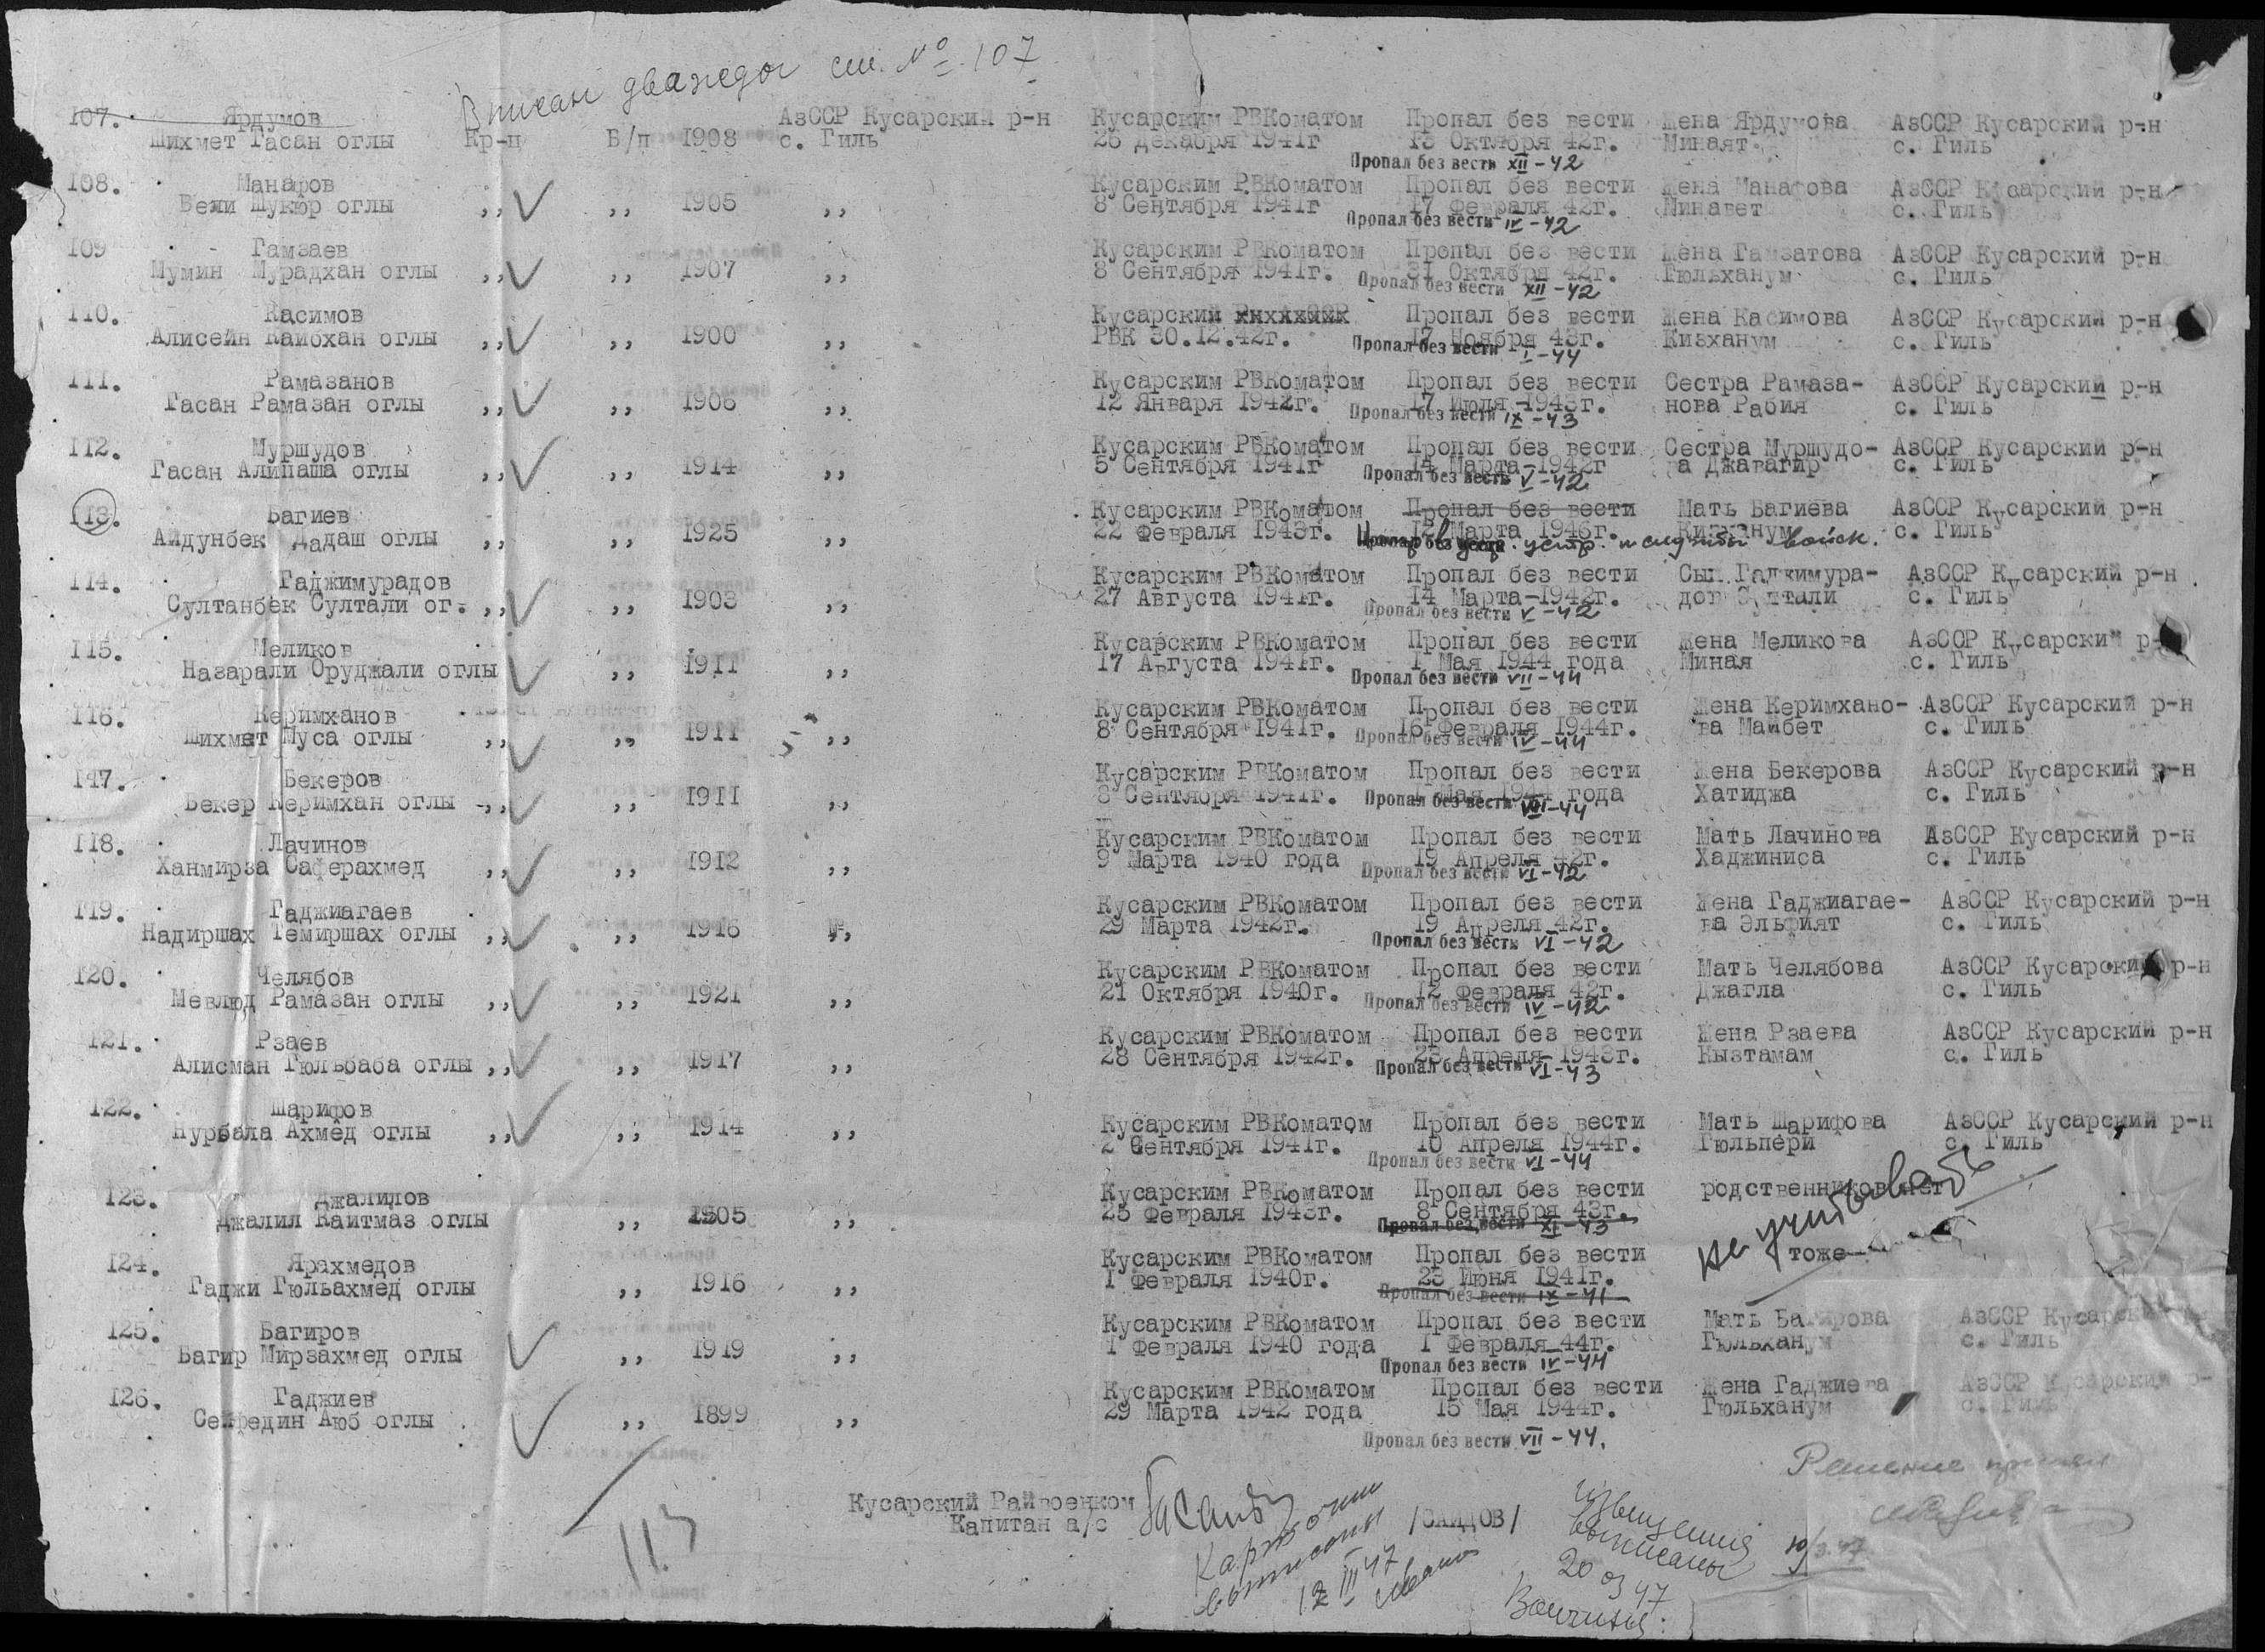 Вписан дважды см. № 107
107. Ярдумов АзССР Кусарский р-н Кусарским РВКоматом Пропал без вести Жена Ярдумова АзССР Кусарский р-н
Шихмет Гасан оглы Кр-ц Б/п 1908 с. Гиль 26 декабря 1941г 13 Октября 42г. Минаят. с. Гиль
Пропал без вести XII-42
108. Манафов Кусарским РВКоматом Пропал без вести Жена Манафова АзССР Кусарский р-н
Вели Шукюр оглы ,, ,, 1905 ,, 8 Сентября 1941г 17 Февраля 42г. Минавет с. Гиль
Пропал без вести IV-42
109 Гамзаев Кусарским РВКоматом Пропал без вести Жена Гамзатова АзССР Кусарский р-н
Мумин Мурадхан оглы ,, ,, 1907 ,, 8 Сентября 1941г. 31 Октября 42г. Гюльханум с. Гиль
Пропал без вести XII-42
110. Касимов Кусарский Пропал без вести Жена Касимова АзССР Кусарский р-н
Алисейн Каибхан оглы ,, ,, 1900 ,, РВК 30.12.42г. 17 Ноября 43г. Кизханум с. Гиль
Пропал без вести I-44
111. Рамазанов Кусарским РВКоматом Пропал без вести Сестра Рамаза- АзССР Кусарский р-н
Гасан Рамазан оглы ,, ,, 1906 ,, 12 Января 1942г. 17 Июля 1943г. нова Рабия с. Гиль
Пропал без вести IX-43
112. Муршудов Кусарским РВКоматом Пропал без вести Сестра Муршудо- АзССР Кусарский р-н
Гасан Алипаша оглы ,, ,, 1914 ,, 5 Сентября 1941г 14 Марта-1942г а Джавагир с. Гиль
Пропал без вести V-42
113. Багиев Кусарским РВКоматом Пропал без вести Мать Багиева АзССР Кусарский р-н
Айдунбек Дадаш оглы ,, ,, 1925 ,, 22 Февраля 1943г. 12 Марта 1946г. Кизханум с. Гиль
Пропал без вести службы войск.
114. Гаджимурадов Кусарским РВКоматом Пропал без вести Сын Гаджимура- АзССР Кусарский р-н
Султанбек Султали ог. ,, ,, 1903 ,, 27 Августа 1941г. 14 Марта-1942г. дов Султали с. Гиль
Пропал без вести V-42
115. Меликов Кусарским РВКоматом Пропал без вести Жена Меликова АзССР Кусарский р-
Назарали Оруджали оглы ,, 1911 ,, 17 Августа 1941г. 1 Мая 1944 года Миная с. Гиль
Пропал без вести VII-44
116. Керимханов Кусарским РВКоматом Пропал без вести Жена Керимхано- АзССР Кусарский р-н
Шихмет Муса оглы ,, ,, 1911 ,, 8 Сентября 1941г. 16 Февраля 1944г. ва Майбет с. Гиль
Пропал без вести IV-44
117. Бекеров Кусарским РВКоматом Пропал без вести Жена Бекерова АзССР Кусарский р-н
Бекер Керимхан оглы ,, ,, 1911 ,, 8 Сентября 1941г. 1 Мая 1944 года Хатиджа с. Гиль
Пропал без вести VII-44
118. Лачинов Кусарским РВКоматом Пропал без вести Мать Лачинова АзССР Кусарский р-н
Ханмирза Саферахмед ,, ,, 1912 ,, 9 Марта 1940 года 19 Апреля 42г. Хаджиниса с. Гиль
Пропал без вести VI-42
119. Гаджиагаев Кусарским РВКоматом Пропал без вести Жена Гаджиагае- АзССР Кусарский р-н
Надиршах Темиршах оглы ,, ,, 1916 ,, 29 Марта 1942г. 19 Апреля 42г. ва Эльфият с. Гиль
Пропал без вести VI-42
120. Челябов Кусарским РВКоматом Пропал без вести Мать Челябова АзССР Кусарский р-н
Мевлюд Рамазан оглы ,, ,, 1921 ,, 21 Октября 1940г. 12 Февраля 42г. Джагла с. Гиль
Пропал без вести IV-42
121. Рзаев Кусарским РВКоматом Пропал без вести Жена Рзаева АзССР Кусарский р-н
Алисман Гюльбаба оглы ,, ,, 1917 ,, 28 Сентября 1942г. 23 Апреля 1943г. Кызтамам с. Гиль
Пропал без вести VI-43
122. Шарифов Кусарским РВКоматом Пропал без вести Мать Шарифова АзССР Кусарский р-н
Нурбала Ахмед оглы ,, ,, 1914 ,, 2 Сентября 1941г. 10 Апреля 1944г. Гюльпери с. Гиль
Пропал без вести VI-44
123. Джалилов Кусарским РВКоматом Пропал без вести родственников нет
Джалил Каитмаз оглы ,, 1905 ,, 25 Февраля 1943г. 8 Сентября 43г.
Пропал без вести XI-43
не учитывать
124. Ярахмедов Кусарским РВКоматом Пропал без вести тоже
Гаджи Гюльахмед оглы ,, 1916 ,, 1 Февраля 1940г. 23 Июня 1941г.
Пропал без вести IX-41
125. Багиров Кусарским РВКоматом Пропал без вести Мать Багирова АзССР Кусарский
Багир Мирзахмед оглы ,, 1919 ,, 1 Февраля 1940 года 1 Февраля 44г. Гюльханум с. Гиль
Пропал без вести IV-44
126. Гаджиев Кусарским РВКоматом Пропал без вести Жена Гаджиева АзССР Кусарский р-
Сейфедин Аюб оглы ,, 1899 ,, 29 Марта 1942 года 15 Мая 1944г. Гюльханум с. Гиль
Пропал без вести VII-44.
113
Кусарский Райвоенком
Капитан а/с /САИДОВ/
Карточки
выписаны
12 III 47
Извещения
выписаны
20 03 47
Решение принял
10/3.47